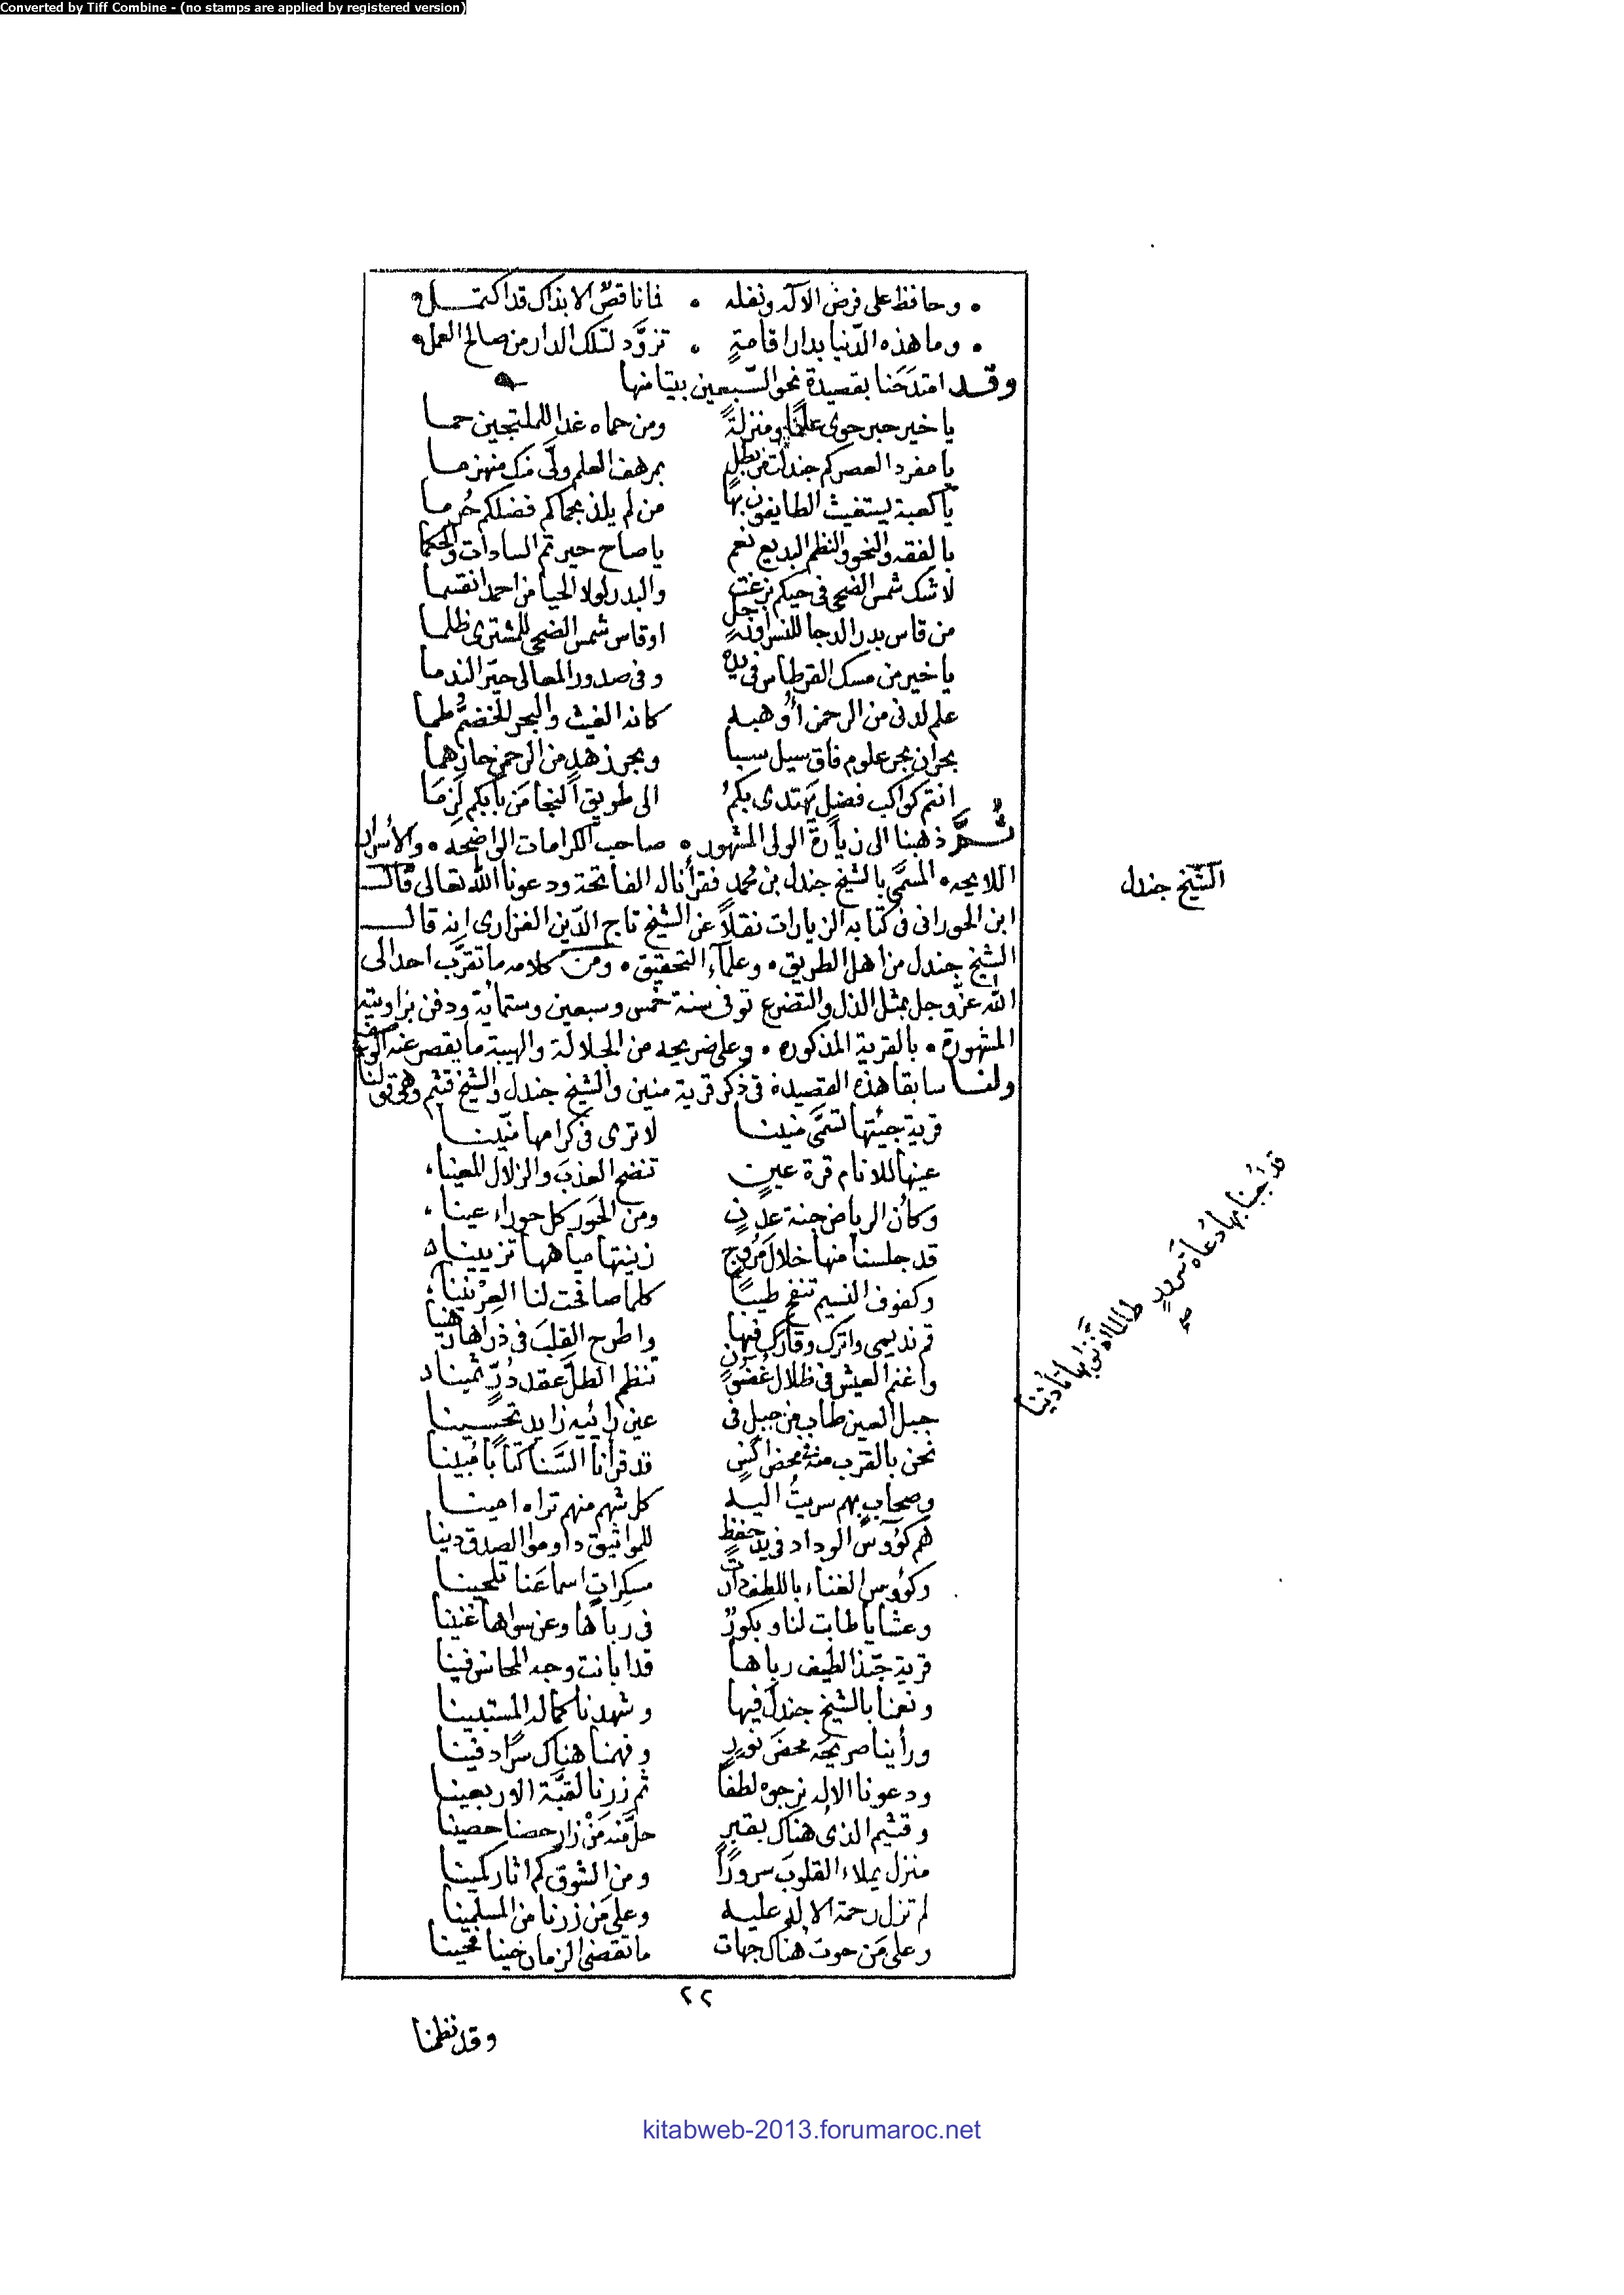 Converted by Tiff Combine - (no stamps are applied by registered version)
• وحافظ على فرض الآله ونفله • فما ناقصٌ الا بذاك قد اكتمل •
• وما هذه الدّنيا بدار اقامةٍ • تزوَّد لتلك الدار من صالح العمل •
وقد امتدَحَنا بقصيدة نحو السّبعين بيتا منها
يا خير حبر حوى علمًا ومنزلةً ومن حماه غدا للملتجين حما
يا مفرد العصر كم جندلت من بطلٍ بمرهف العلم ولَّى منك منهزما
يا كعبة يستغيث الطايفون بها من لم يلذ بحماكم فضلكم حُرما
بالفقه والنحو والنظم البديع نعم يا صاح حيرتم السادات والحكما
لا شك شمس الضحى في حيكم بزغت والبدر لولا الحيا من احمد انقسما
من قاس بدر الدجا للنسر او زحل او قاس شمس الضحى للمشترى ظلما
يا خير من مسك القرطاس في يده وفي صدور المعالى حيّر الندما
علم لدنى من الرحمن أُوهبه كانه الغيث والبحر الخضمُّ طما
بحران بحر علوم فاق سيل سبا وبحر زهدٍ من الرحمن حازهما
انتم كواكب فضلٍ يَهتدى بكمُ الى طريق النجا مَن بابكم لَزِمَا
ثُمَّ ذهبنا الى زيارة الولى المشهور • صاحب الكرامات الواضحه • والأسرار
اللايحه • المسمَّى بالشيخ جندل بن محمدٍ فقرأنا له الفاتحة ودعونا الله تعالى قال
الشّيخ جندل
ابن الحورانى في كتابه الزيارات نقلاً عن الشيخ تاج الدّين الفزارى انه قال
الشيخ جندل من اهل الطريق • وعلمآء التحقيق • ومن كلامه ما تقرَّب احد الى
الله عزَّ وجل بمثل الذل والتضرع توفى سنة خمس وسبعين وستمائة ودفن بزاويته
المشهورة • بالقرية المذكوره • وعلى ضريحه من الجلالة والهيبة ما يقصر عنه الوصف
ولنا سابقا هذه القصيدة في ذكر قرية منين والشيخ جندل والشيخ قثيم وهو قولنا
قرية جئتها تسمَّى منينا لا ترى في كرامها منّينا
عينها للانام قرة عينٍ تنضح العذبَ والزلال المعينا
وكأن الرياض جنة عدنٍ ومن الحَور كل حوراء عينا
قد جلسنا منها خلال مُروجٍ زينتها مياهها تزيينا
وكفوف النسيم تنفح طيبًا كلما صافحت لنا العِرْنينا
قم نديمى واترك وقارك فيها واطرح القلبَ في ذراها رهينا
واغنم العيش في ظلال غُصُونٍ تنظم الطلَّ عقد دُرٍّ ثمينا
جبل العين طاب من جبلٍ في عين رائيه زايد تحسينا
نحن بالقرب منه في محض انسٍ قد قرأنا السَّنا كتابًا مُبينا
وصحابٍ بهم سريتُ اليه كل شهم منهم تراه امينا
هم كؤوس الوداد في يد حفظٍ للمواثيق داوموا الصدق دينا
وكؤوس الغناء باللطف دارت مسكراتٍ اسماعَنا تلحينا
وعشايا طابت لنا وبكورٌ في رباها وعن سواها غنينا
قرية حبّذا لطيف رباها قد ابانت وجه المحاسن فينا
ونعمنا بالشيخ جندل فيها وشهدنا كماله المستبينا
ورأينا ضريحَه محضَ نورٍ وفهمنا هناك سرًّا دفينا
ودعونا الاله نرجوه لطفًا ثم زرنا لقبَّة الاربعينا
وقثيم الذى هناك بقبرٍ حلَّ منه مَنْ زار حصنا حصينا
منزل يملاء القلوبَ سرورًا ومن الشوق كم اثار كمينا
لم تزل رحمة الاله عليه وعلى مَن زرنا من المسلمينا
وعلى مَن حوت هناك جهات ما تقضى الزمان حينا فحينا
٢٢
وقد نظمنا
kitabweb-2013.forumaroc.net